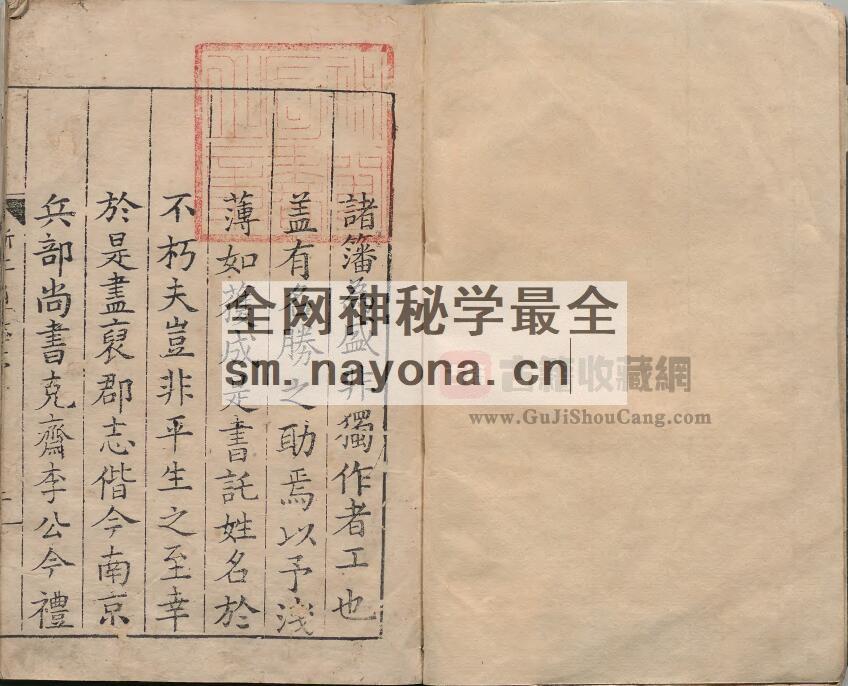 諸籓為盛非獨作者工也
盖有名勝之助焉以予淺
薄如獲成是書託姓名於
不朽夫豈非平生之至幸
於是盡裒郡志偕今南京
兵部尚書克齋李公今禮
全网神秘学最全
sm.nayona.cn
古籍收藏網
www.GuJiShouCang.com